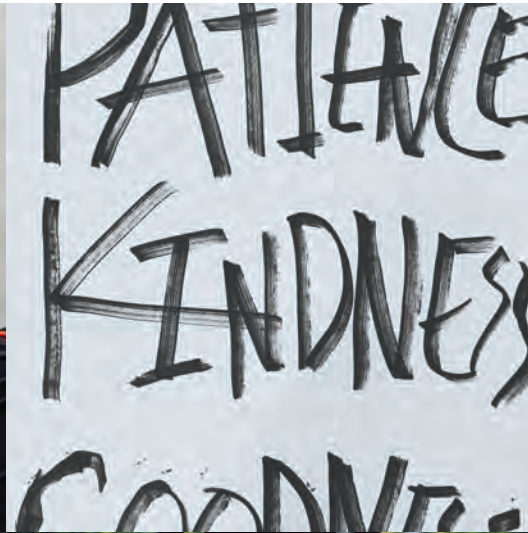 PATIENCE
KINDNESS
GOODNESS